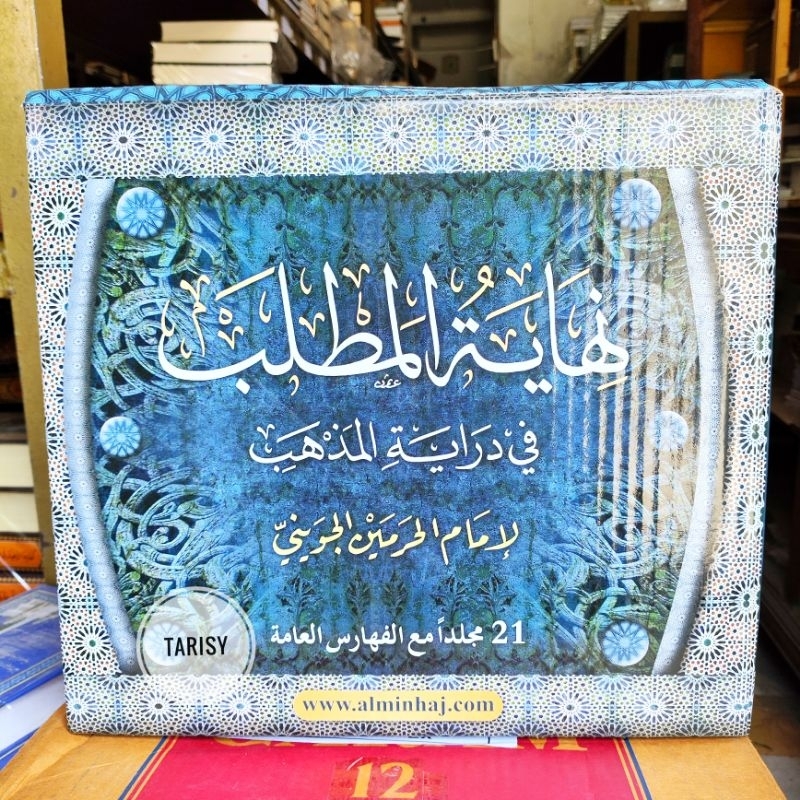 نِهَايَةُ المَطْلَبِ
فِي دِرَايَةِ المَذْهَبِ
لإِمَامِ الحَرَمَيْنِ الجُوَيْنِيّ
21 مجلداً مع الفهارس العامة
TARISY
www.alminhaj.com
12